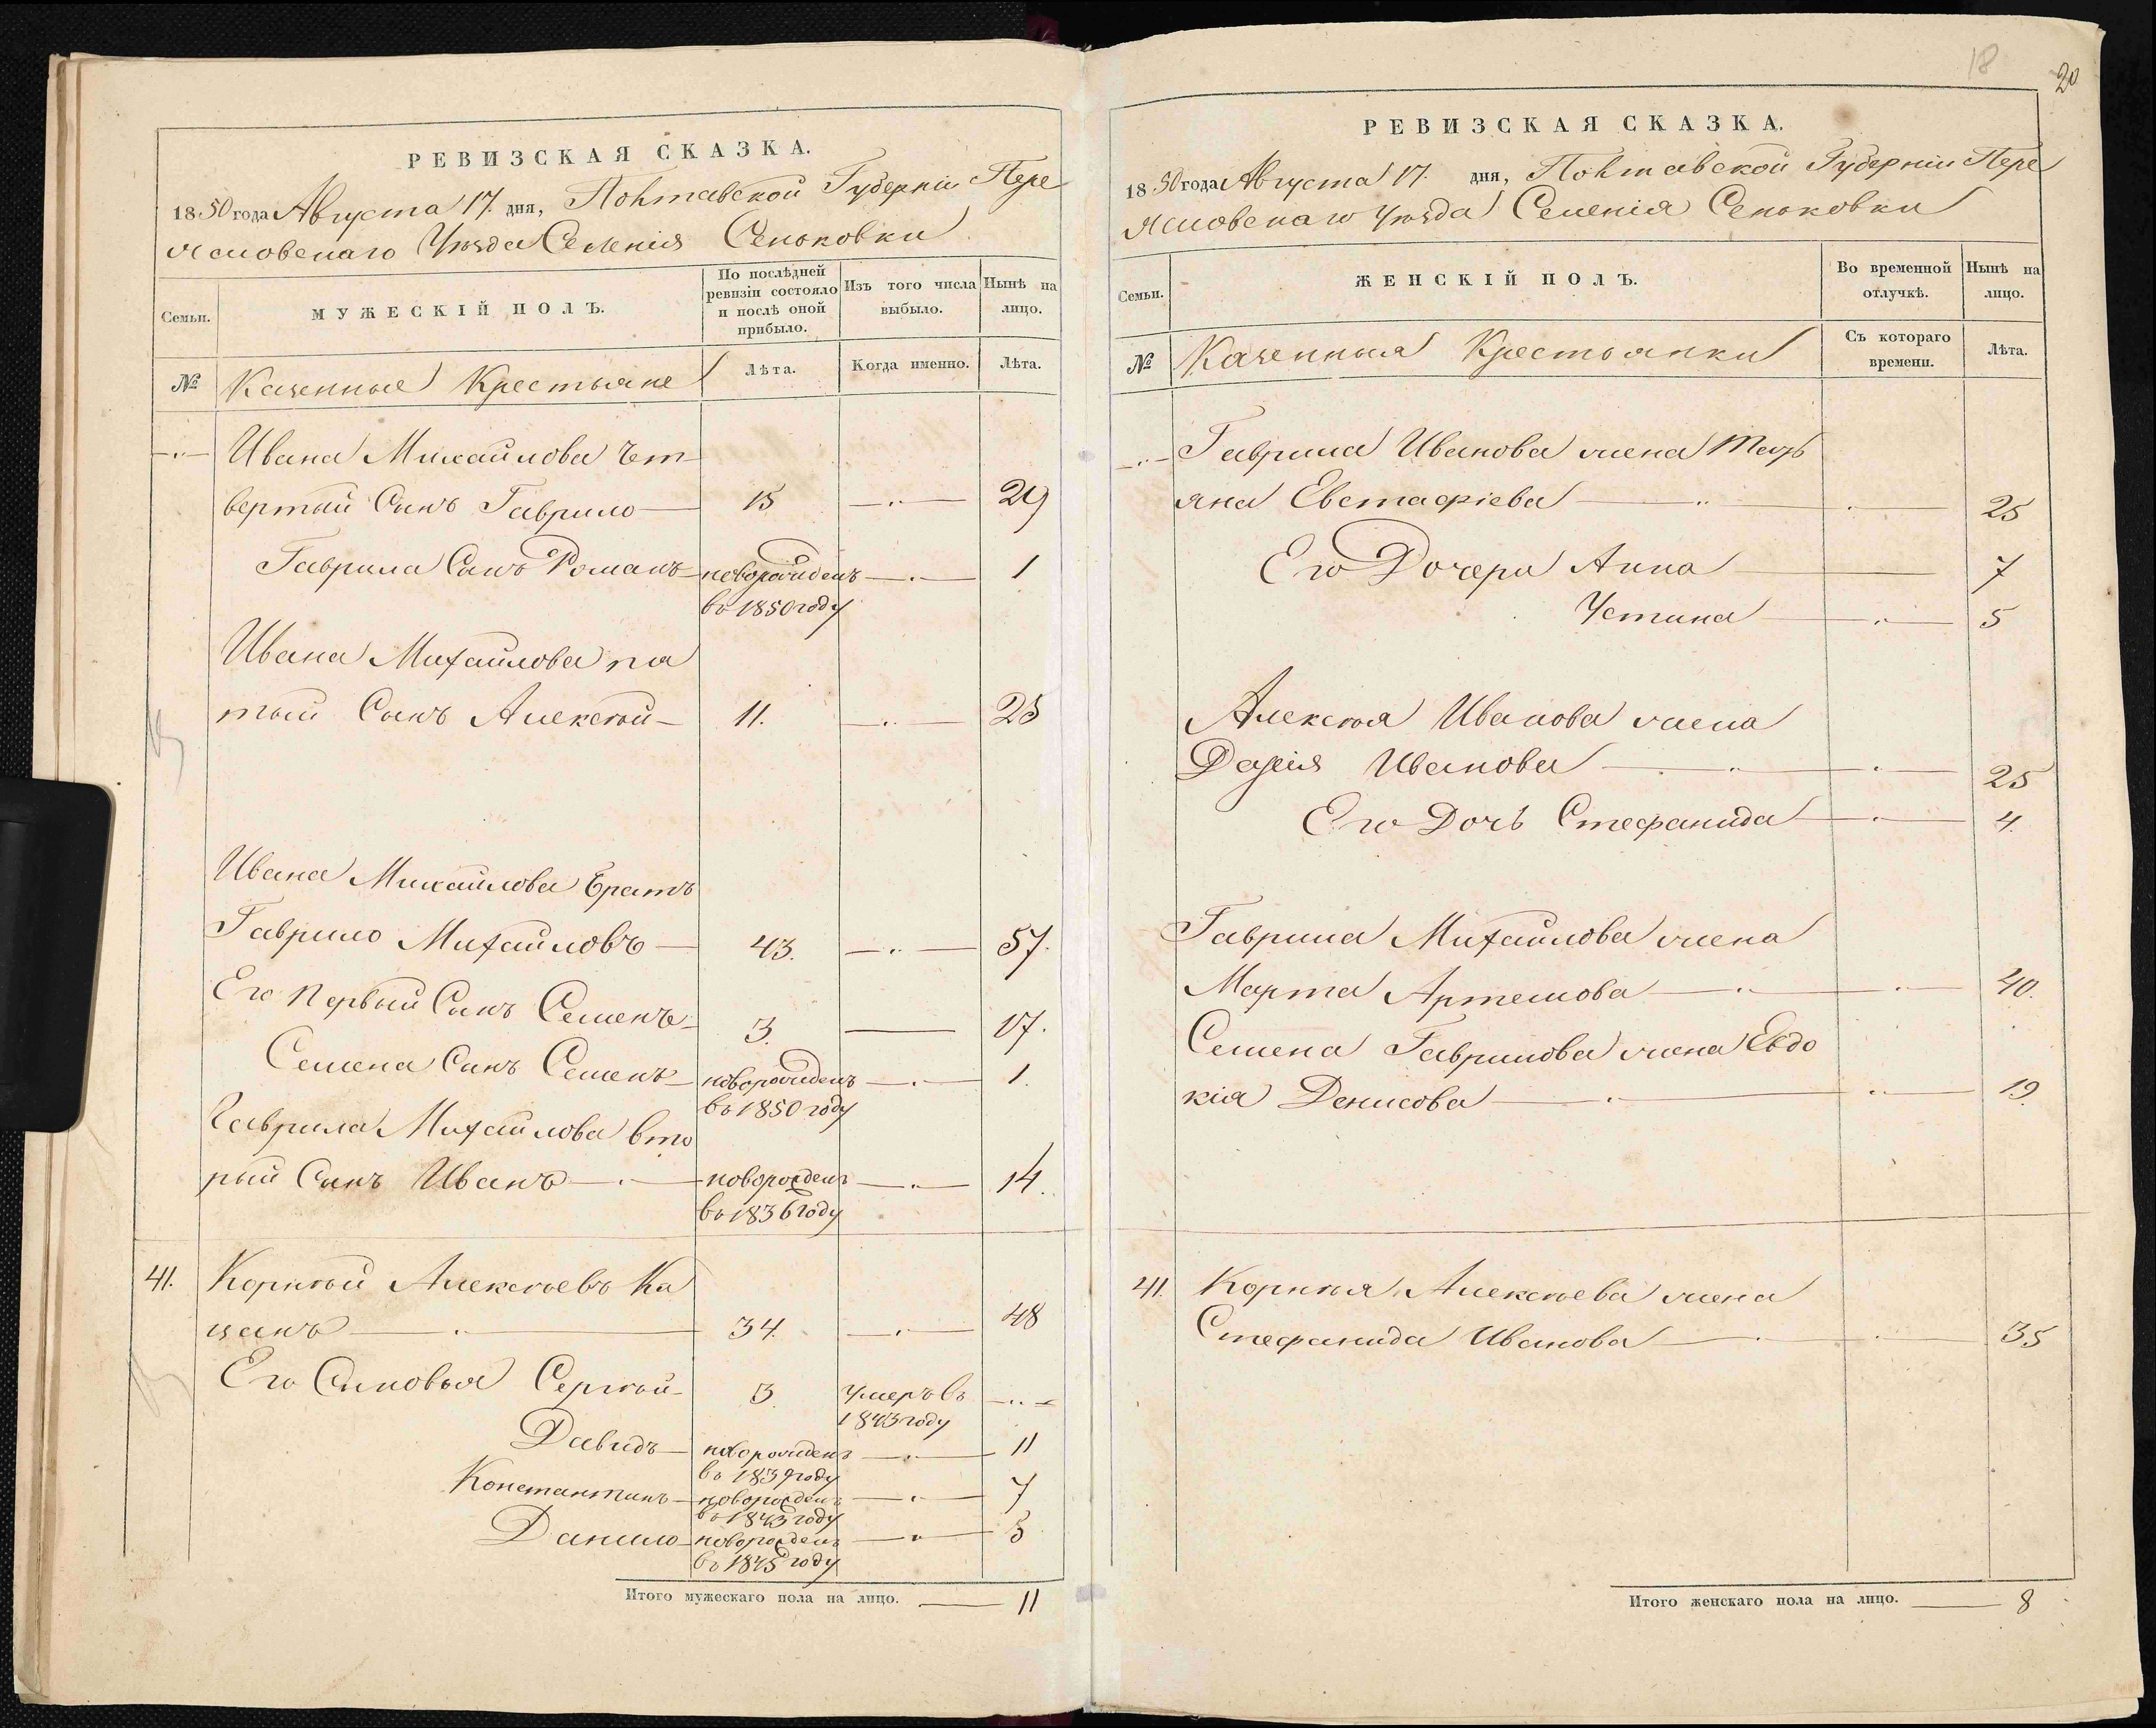 РЕВИЗСКАЯ СКАЗКА.
1850 года Августа 17. дня, Полтавской Губерніи Пере
яславскаго Уѣзда Селенія Сеньковки
Семьи.
МУЖЕСКІЙ ПОЛЪ.
По послѣдней ревизіи состояло и послѣ оной прибыло.
Изъ того числа выбыло.
Нынѣ на лицо.
№
Казенные Крестьяне
Лѣта.
Когда именно.
Лѣта.
Ивана Михайлова чет
вертый Сынъ Гаврило 15 29
Гаврила Сынъ Романъ новорожденъ 1
въ 1850 году
Ивана Михайлова пя
тый Сынъ Алексѣй 11. 25
Ивана Михайлова братъ
Гаврило Михайловъ 43. 57.
Его первый Сынъ Семенъ 3. 17.
Семена Сынъ Семенъ новорожденъ 1.
въ 1850 году
Гаврила Михайлова вто
рый Сынъ Иванъ новорожденъ 14.
въ 1836 году
41. Корнѣй Алексѣевъ Ка
цанъ 34. 48
Его Сыновья Сергѣй 3. умеръ въ
1843 году
Давидъ новорожденъ 11
въ 1839 году
Константинъ новорожденъ 7
въ 1843 году
Данило новорожденъ 5
въ 1845 году
Итого мужескаго пола на лицо. 11
18
20
РЕВИЗСКАЯ СКАЗКА.
1850 года Августа 17. дня, Полтавской Губерніи Пере
яславскаго Уѣзда Селенія Сеньковки
Семьи.
ЖЕНСКІЙ ПОЛЪ.
Во временной отлучкѣ.
Нынѣ на лицо.
№
Казенныя Крестьянки
Съ котораго времени.
Лѣта.
Гаврила Иванова жена Тать
яна Евстафіева 25
Его Дочери Анна 7
Устина 5
Алексѣя Иванова жена
Дарія Иванова 25
Его Дочь Стефанида 4.
Гаврила Михайлова жена
Марта Артемова 40.
Семена Гаврилова жена Евдо
кія Денисова 19.
41. Корнѣя Алексѣева жена
Стефанида Иванова 35
Итого женскаго пола на лицо. 8